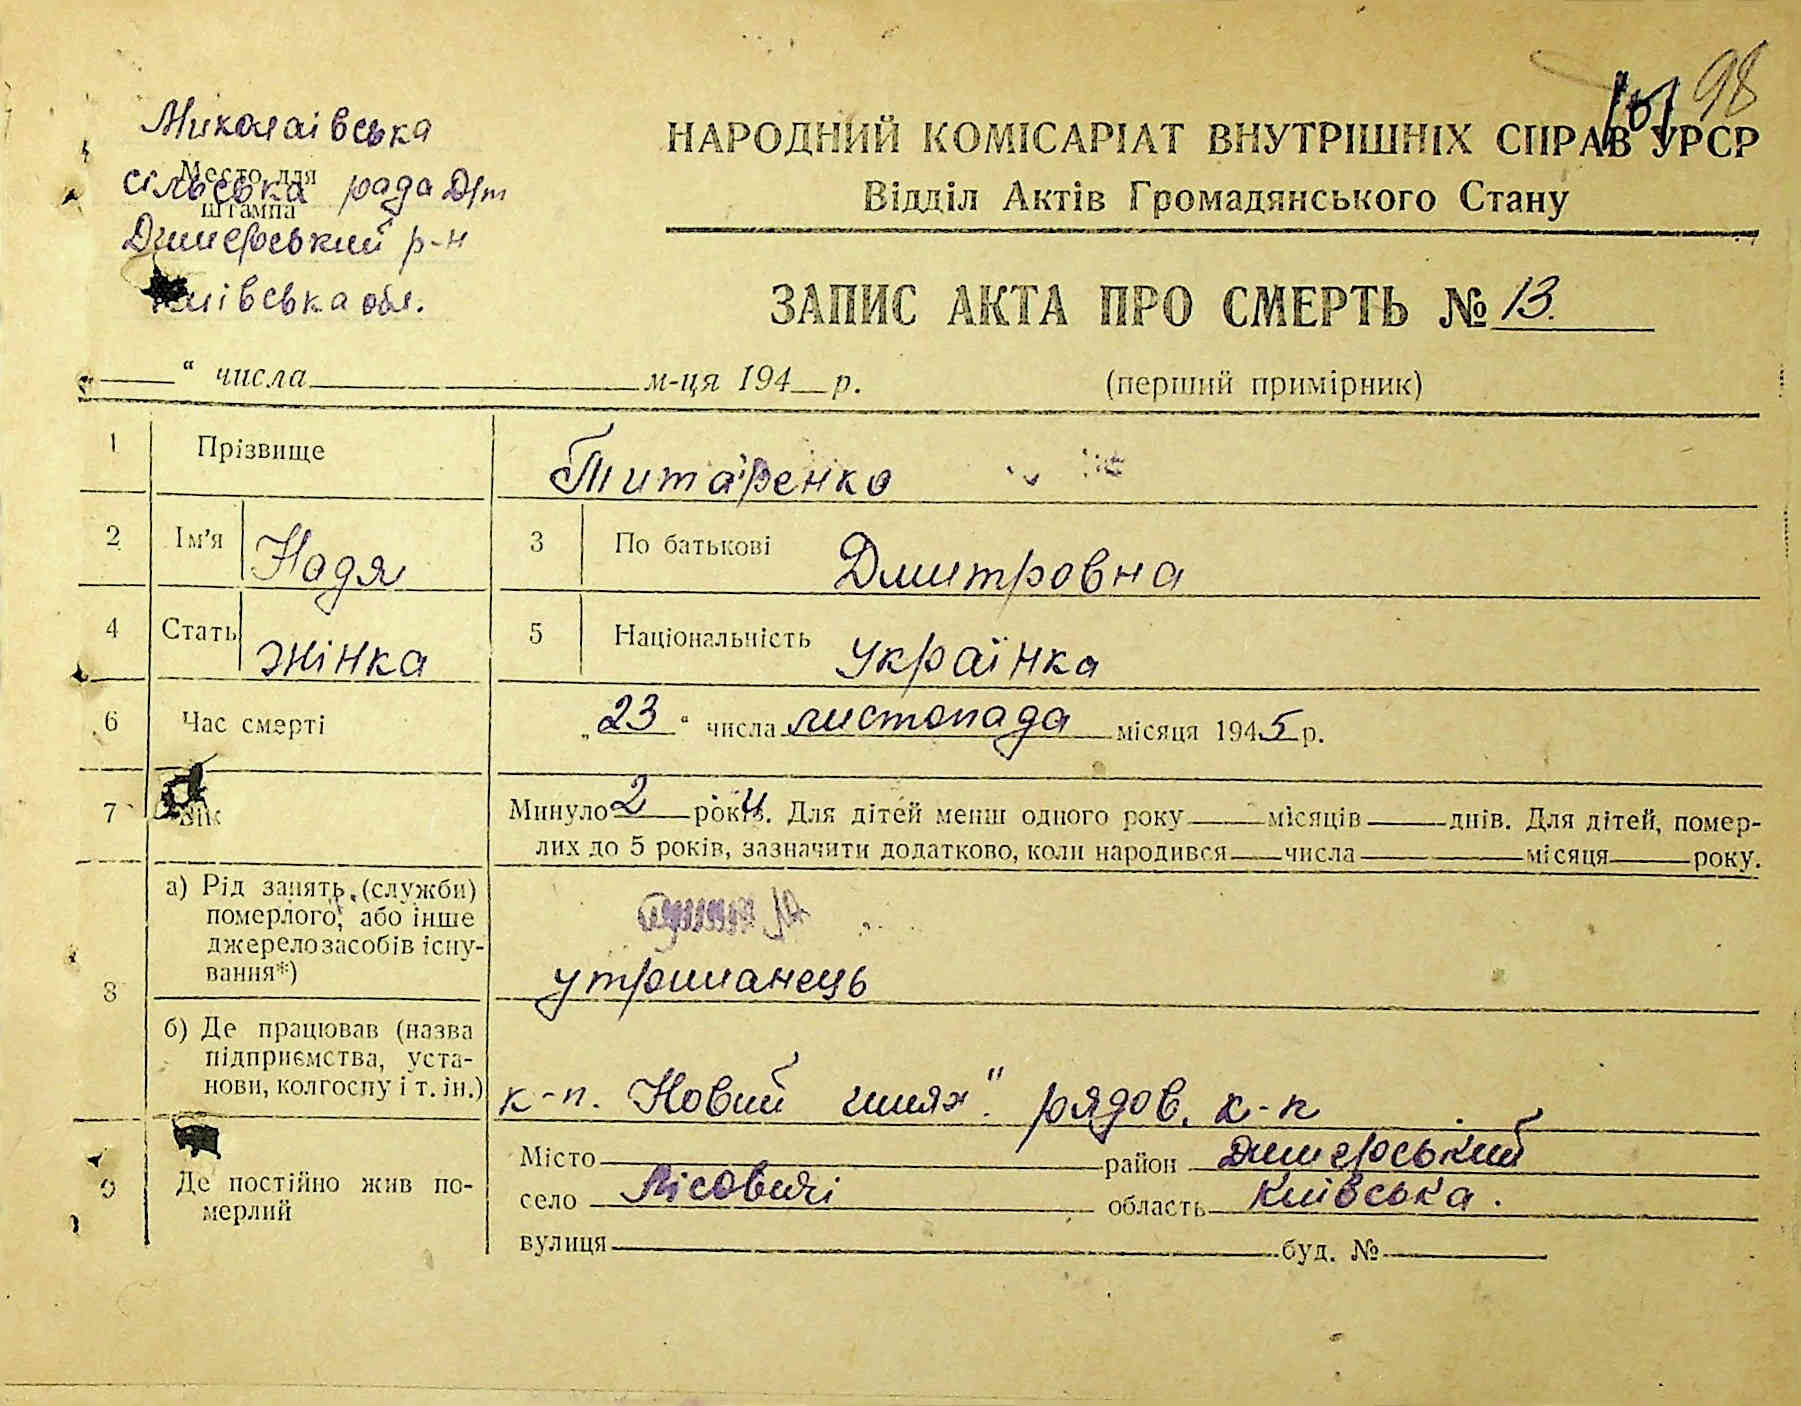 98
101
Миколаівська
Место для
сільська рада
штампа
Димерський р-н
Київська обл.
НАРОДНИЙ КОМІСАРІАТ ВНУТРІШНІХ СПРАВ УРСР
Відділ Актів Громадянського Стану
ЗАПИС АКТА ПРО СМЕРТЬ № 13.
“ числа м-ця 194 р.
(перший примірник)
1 Прізвище Титаренко
2 Ім'я Надя 3 По батькові Дмитровна
4 Стать жінка 5 Національність українка
6 Час смерті „23“ числа листопада місяця 1945 р.
7 Вік Минуло 2 роки. Для дітей менш одного року місяців днів. Для дітей, помер-
лих до 5 років, зазначити додатково, коли народився числа місяця року.
8 а) Рід занять (службы)
померлого, або інше
джерело засобів існу-
вання*)
утриманець
б) Де працював (назва
підприємства, уста-
нови, колгоспу і т. ін.)
к-п. Новий шлях" рядов. к-п
9 Де постійно жив по-
мерлий
Місто район Димерський
село Лісовичі область Київська.
вулиця буд. №